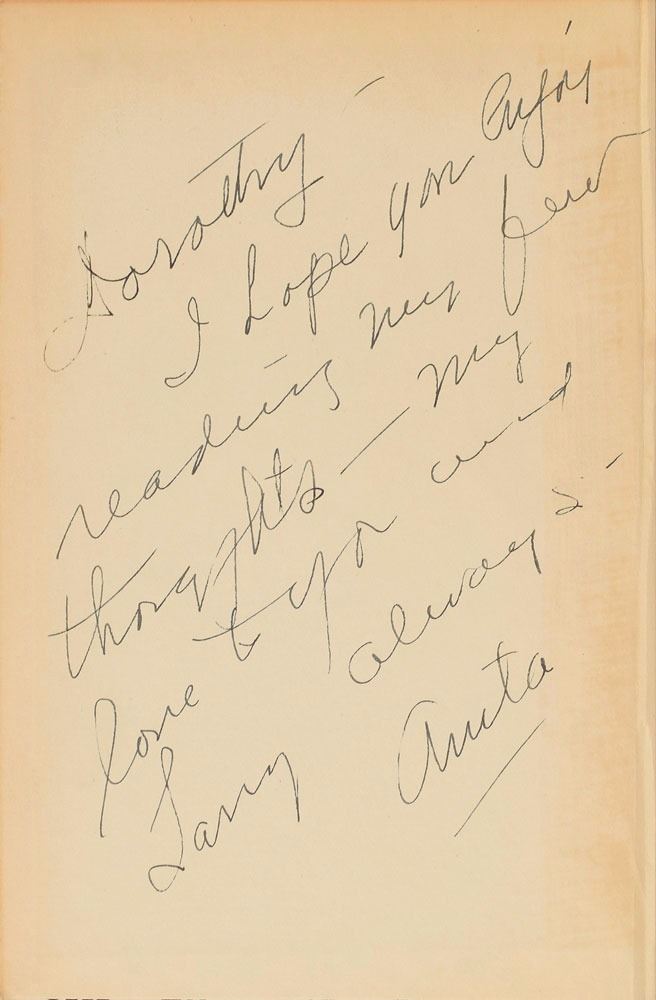 Dorothy —
I hope you enjoy
reading my few
thoughts — my
love to you and
Larry always —
Anita